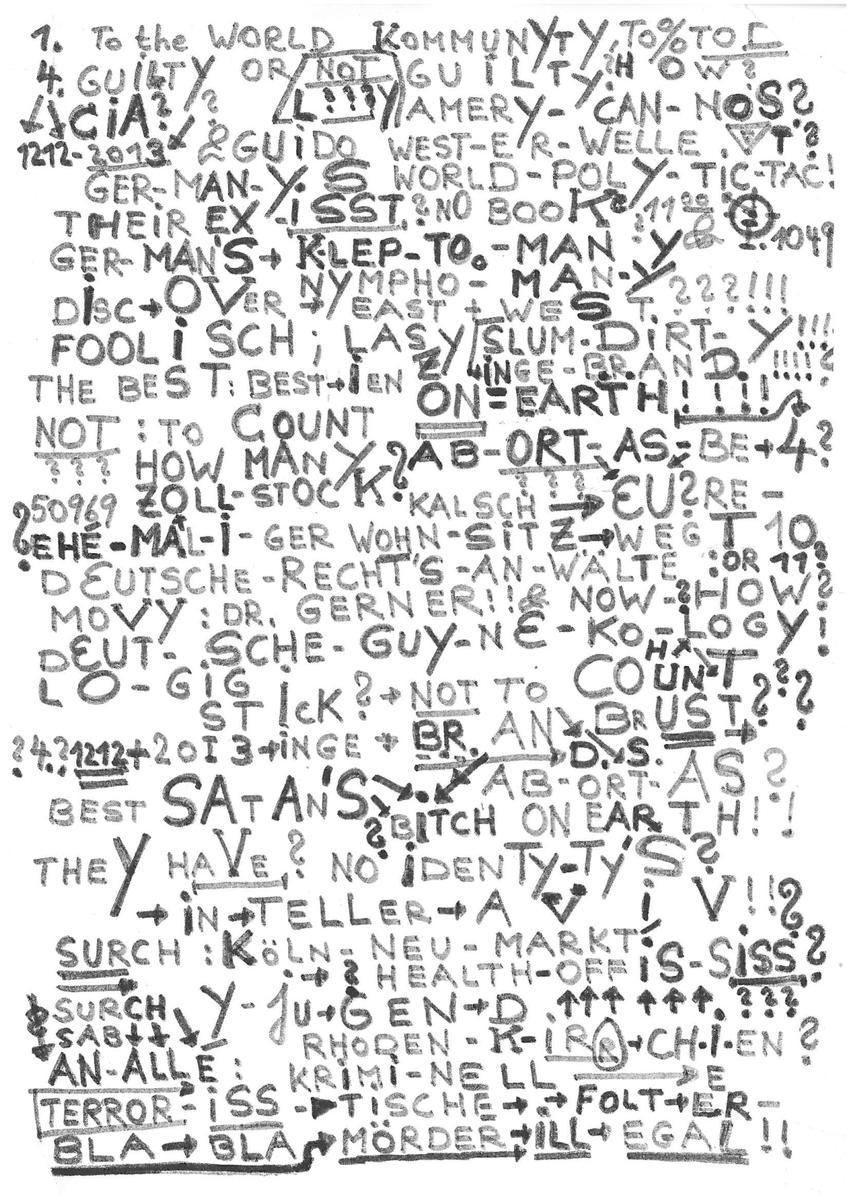 1. To the WORLD KOMMUNYTY, TO%TOL
4. GUILTY OR NOT GUILTY? HOW?
CIA?? L???Y AMERY-CAN-NOS?
1212-2013 & GUIDO WEST-ER-WELLE.
GER-MAN-Y.S WORLD-POLY-TIC-TAC!
THEIR EX-iSST.?NO BOOK?
1049
GER-MAN'S→KLEP-TO.-MAN Y
DISC→OVER →NYMPHO-MAN-Y
EAST + WEST.???!!!
FOOLiSCH; LASY/SLUM-DiRT-Y!!!
THE BEST: BEST→iEN Z iNGE-BRAND.!!!!?
ON=EARTH!!!!
NOT: TO COUNT
??? HOW MANY? AB-ORT-AS-BE→4?
?50969 ZOLL-STOCK. KALSCH???→EU?RE-
?EHÉ-MAL-I-GER WOHN-SiTZ→WEG T 10.
DEUTSCHE-RECHT'S-AN-WÄLTE:OR 11?
MOVY: DR. GERNER!!& NOW-?HOW?
DEUT-SCHE-GUY-NE-KO-LOGY!
LO-GIG
STICK?→NOT TO COUNT
?4.?1212+2013→iNGE→BR.AN D.S. BRUST??
AB-ORT-AS?
BEST SATAN'S→BITCH ON EARTH!!
THEY HAVE? NO iDENTY-TY'S?
→iN→TELLER→A V i V!!?
SURCH: KÖLN-NEU-MARKT
→? HEALTH-OFFiS-SiSS?
SURCH Y-JU→GEN→D.↑↑↑↑↑↑.???
SAB↓↓ RHODEN-K-iRR→CH·I·EN?
AN-ALLE: KRiMi-NELL→E
TERROR-iSS-→TISCHE→.→FOLT→ER-
BLA→BLA→MÖRDER→ILL→EGAL!!